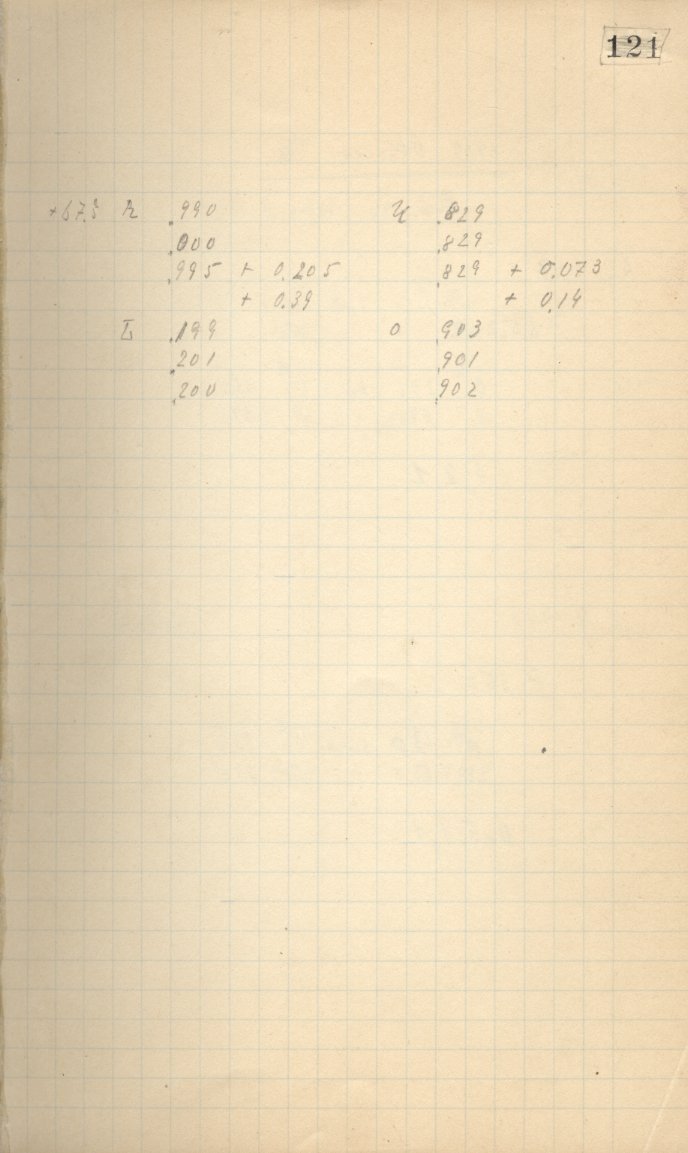 121
+67.5 h .990 γ .829
.000 .829
.995 + 0.205 .829 + 0.073
+ 0.39 + 0.14
L .199 o .903
.201 .901
.200 .902